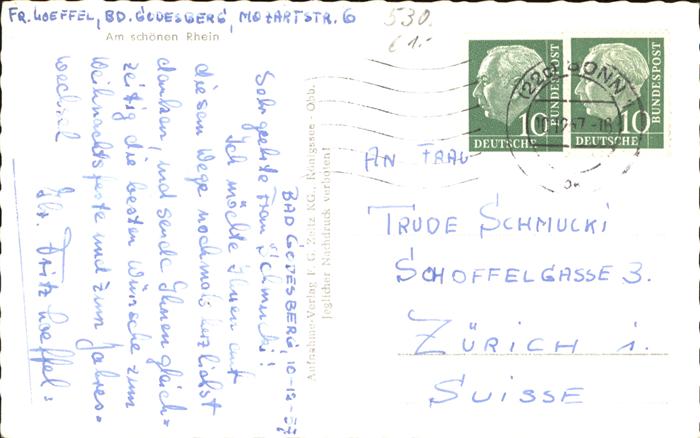 FR. LOEFFEL, BD. GODESBERG, MOZARTSTR. 6
Am schönen Rhein
530.
€ 1.-
BAD GODESBERG, 10-12-57
Sehr geehrte Frau Schmucki!
Ich möchte Ihnen auf
diesem Wege nochmals herzlichst
danken, und sende Ihnen gleich=
zeitig die besten Wünsche zum
Weihnachtsfeste und zum Jahres=
wechsel
Ihr Fritz Loeffel
Aufnahme-Verlag F. G. Zeitz KG., Königssee - Obb.
Jeglicher Nachdruck verboten!
10
DEUTSCHE
BUNDESPOST
10
DEUTSCHE
BUNDESPOST
(22c) BONN 1
AN FRAU
TRUDE SCHMUCKI
SCHOFFELGASSE 3.
ZÜRICH 1.
SUISSE